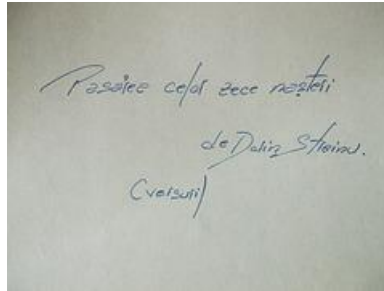 Pasărea celor zece nașteri
de Dolin Streinu.
(versuri)